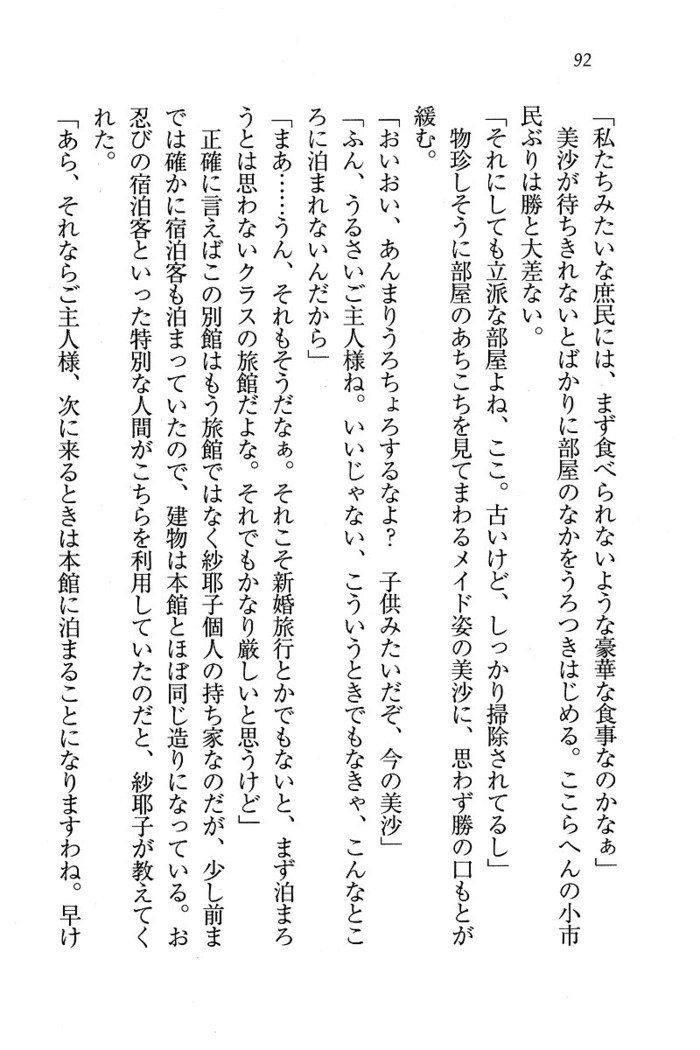 92
「私たちみたいな庶民には、まず食べられないような豪華な食事なのかなぁ」
美沙が待ちきれないとばかりに部屋のなかをうろつきはじめる。ここらへんの小市
民ぶりは勝と大差ない。
「それにしても立派な部屋よね、ここ。古いけど、しっかり掃除されてるし」
物珍しそうに部屋のあちこちを見てまわるメイド姿の美沙に、思わず勝の口もとが
緩む。
「おいおい、あんまりうろちょろするなよ?　子供みたいだぞ、今の美沙」
「ふん、うるさいご主人様ね。いいじゃない、こういうときでもなきゃ、こんなとこ
ろに泊まれないんだから」
「まあ……うん、それもそうだなぁ。それこそ新婚旅行とかでもないと、まず泊まろ
うとは思わないクラスの旅館だよな。それでもかなり厳しいと思うけど」
正確に言えばこの別館はもう旅館ではなく紗耶子個人の持ち家なのだが、少し前ま
では確かに宿泊客も泊まっていたので、建物は本館とほぼ同じ造りになっている。お
忍びの宿泊客といった特別な人間がこちらを利用していたのだと、紗耶子が教えてく
れた。
「あら、それならご主人様、次に来るときは本館に泊まることになりますわね。早け